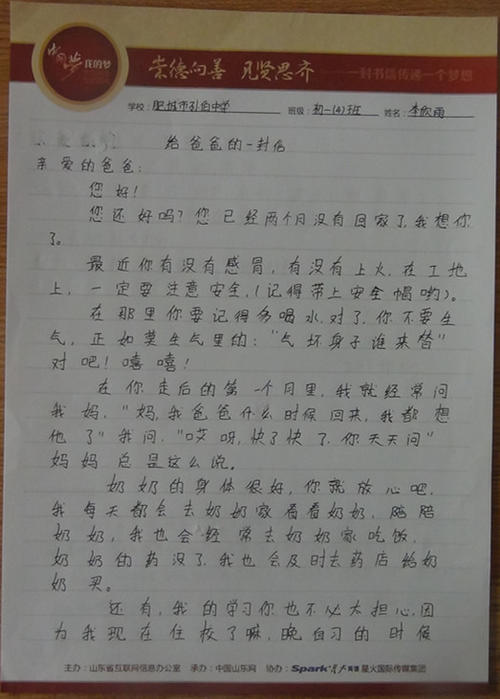 中国梦 我的梦
崇德向善 见贤思齐
一封书信传递一个梦想
学校: 肥城市孔伯中学 班级: 初一(4)班 姓名: 李欣雨
给爸爸的一封信
亲爱的爸爸:
您好!
您还好吗?您已经两个月没有回家了,我想你
了。
最近你有没有感冒,有没有上火,在工地
上,一定要注意安全,(记得带上安全帽哟)。
在那里你要记得多喝水,对了,你不要生
气,正如莫生气里的:“气坏身子谁来替”
对吧!嘻嘻!
在你走后的第一个月里,我就经常问
我妈,“妈,我爸爸什么时候回来,我都想
他了”我问,“哎呀,快了快了,你天天问”
妈妈总是这么说。
奶奶的身体很好,你就放心吧,
我每天都会去奶奶家看看奶奶,陪陪
奶奶,我也会经常去奶奶家吃饭,
奶奶的药没了,我也会及时去药店给奶
奶买。
还有,我的学习你也不必太担心,因
为我现在住校了嘛,晚自习的时候
主办:山东省互联网信息办公室 承办:中国山东网 协办:Spark 星火英语 星火国际传媒集团